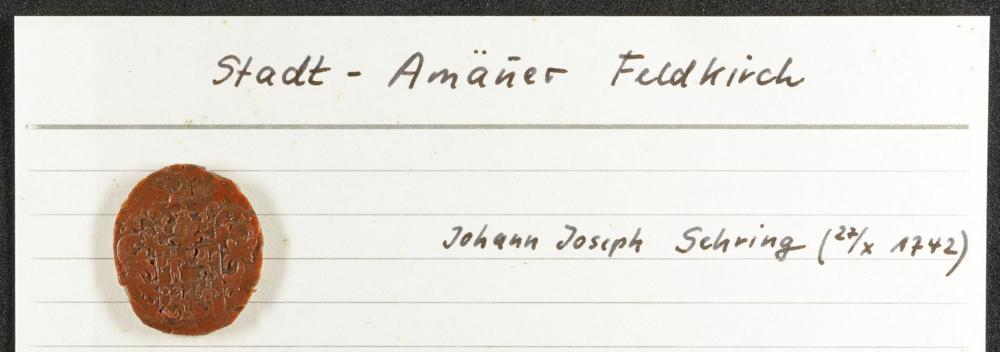 Stadt - Amañer Feldkirch
Johann Joseph Sehring (27/X 1742)